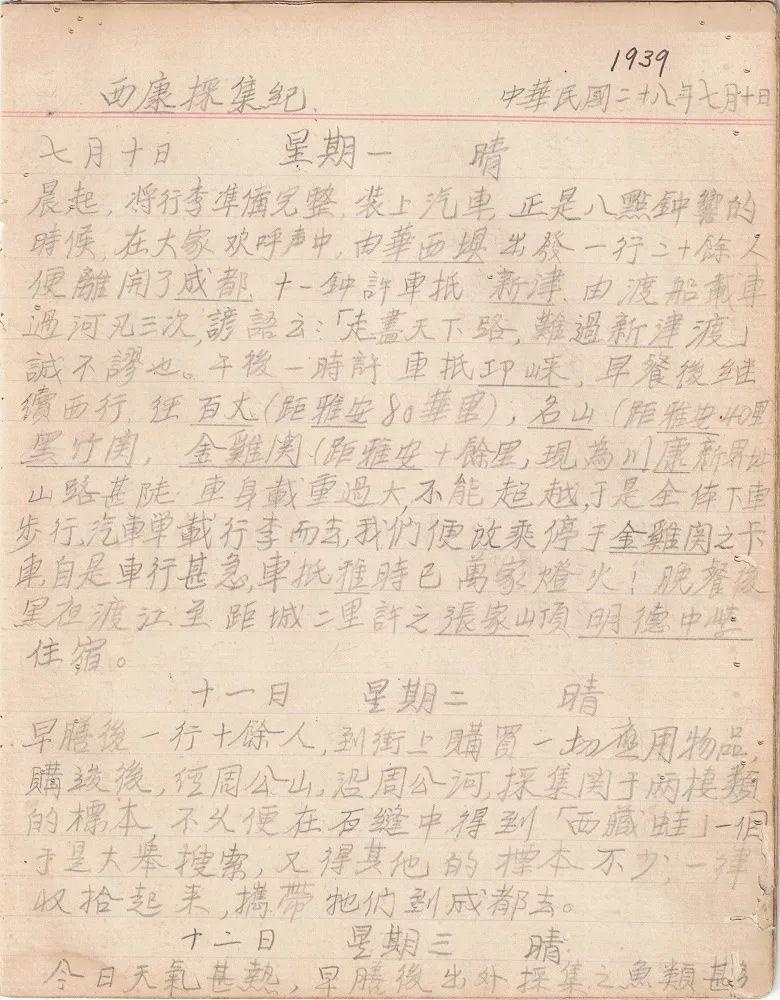 1939
西康採集紀 中華民國二十八年七月十日
七月十日 星期一 晴
晨起,將行李準備完整,裝上汽車,正是八點鐘響的
時候,在大家欢呼声中,由華西壩出發一行二十餘人
便離開了成都,十一鐘許車抵新津,由渡船載車
過河凡三次,諺語云:「走盡天下路,難過新津渡」
誠不謬也。午後一時許車抵邛崍,早餐後继
續西行,经百丈(距雅安80華里),名山(距雅安40里
黑竹関,金雞関(距雅安十餘里,現為川康新界址
山路甚陡 車身載重過大,不能超越,于是全体下車
步行,汽車単載行李而去,我們便放乘停于金雞関之卡
車,自是車行甚急,車抵雅時已萬家燈火!晚餐後
黑夜渡江至距城二里許之張家山頂明德中學
住宿。
十一日 星期二 晴
早膳後一行十餘人,到街上購買一切應用物品,
購竣後,經周公山,沿周公河,採集関于兩棲類
的標本,不久便在石缝中得到「西藏蛙」一個
于是大舉搜索,又得其他的標本不少;一律
收拾起来,攜帶牠们到成都去。
十二日 星期三 晴
今日天氣甚熱,早膳後出外採集之魚類甚多